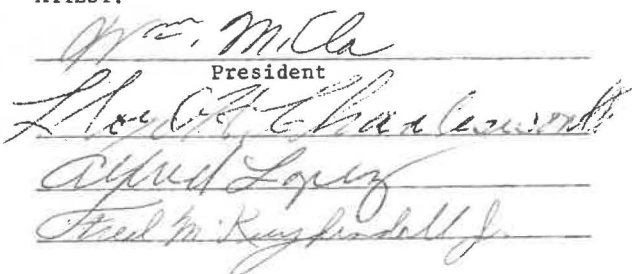 ATTEST:
Wm. M.
President
Charlesworth
Alfred Lopez
Fred M. Kuykendall Jr.